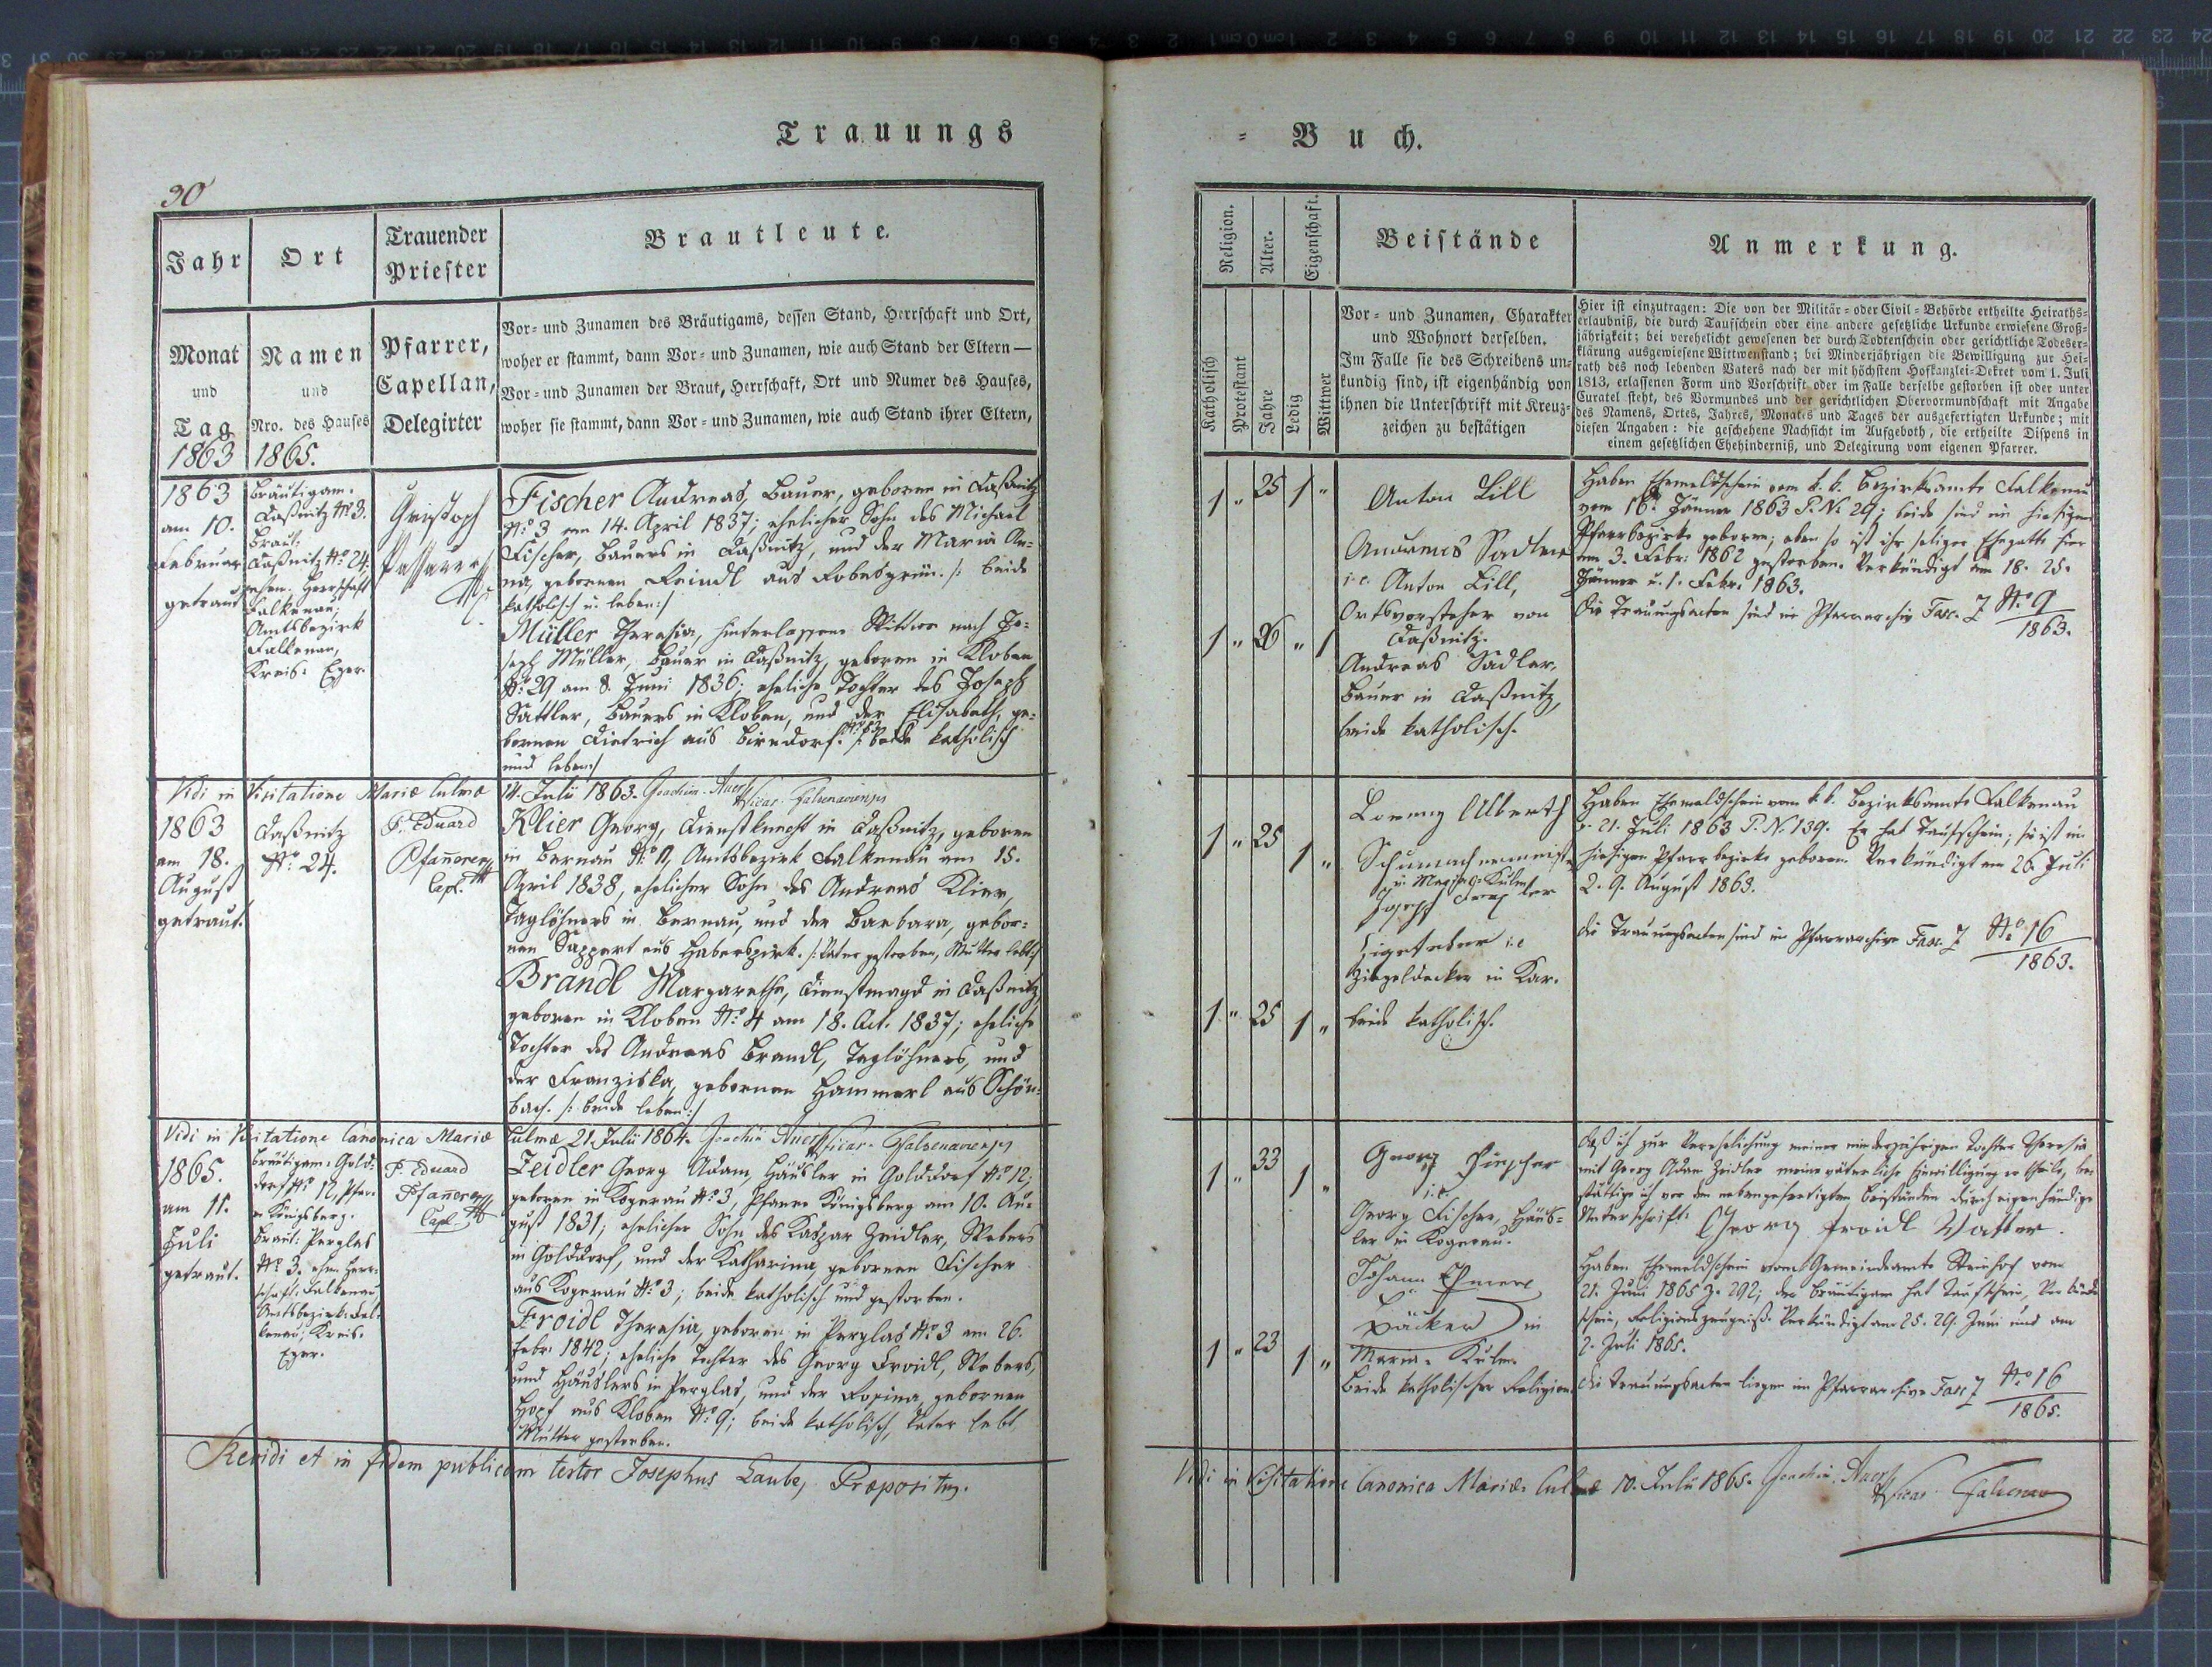 Trauungs
= Buch.
30
Jahr
Ort
Trauender
Priester
Brautleute.
Monat
und
Tag
1863
Namen
und
Nro. des Hauses
1865.
Pfarrer,
Capellan,
Delegirter
Vor- und Zunamen des Bräutigams, dessen Stand, Herrschaft und Ort,
woher er stammt, dann Vor- und Zunamen, wie auch Stand der Eltern —
Vor- und Zunamen der Braut, Herrschaft, Ort und Numer des Hauses,
woher sie stammt, dann Vor- und Zunamen, wie auch Stand ihrer Eltern,
1863
am 10.
Februar
getraut
Bräutigam.
Daßnitz N° 3.
Braut:
Daßnitz N° 24.
ehem. Herrschaft
Falkenau;
Amtsbezirk
Falkenau,
Kreis: Eger.
Christoph
Fischer Andreas, Bauer, geboren in Daßnitz
N° 3 am 14. April 1837; ehelicher Sohn des Michael
Fischer, Bauers in Daßnitz, und der Maria An-
na, gebornen Reindl aus Robesgrün. /: beide
katholisch u. leben :/
Müller Theresia, hinterlassene Wittwe nach Jo-
seph Müller, Bauer in Daßnitz, geboren in Kloben
N° 29 am 8. Juni 1836; eheliche Tochter des Joseph
Sattler, Bauers in Kloben, und der Elisabeth, ge-
bornen Dietrich aus Birndorf. /: beide katholisch
und leben :/
Vidi in Visitatione Mariæ Culmæ 14. Julii 1863. Joachim Auer Vicar. Falkenaviensis
1863
am 18.
August
getraut.
Daßnitz
N° 24.
P. Eduard
Pfannerer
Capl.
Klier Georg, Dienstknecht in Daßnitz, geboren
in Bernau N° 11, Amtsbezirk Falkenau am 15.
April 1838, ehelicher Sohn des Andreas Klier,
Taglöhners in Bernau, und der Barbara, gebor-
nen Sappert aus Haberspirk. /: Vater gestorben, Mutter lebt :/
Brandl Margaretha, Dienstmagd in Daßnitz,
geboren in Kloben N° 4 am 18. Oct. 1837; eheliche
Tochter des Andreas Brandl, Taglöhners, und
der Franziska, gebornen Hammerl aus Schön-
bach. /: beide leben :/
Vidi in Visitatione Canonica Mariæ Culmæ 21. Julii 1864. Joachim Auer Vicar. Falkenaviensis
1865.
am 11.
Juli
getraut.
Bräutigam: Gold-
dorf N° 12, Pfar-
re Königsberg.
Braut: Perglas
N° 3. ehem. Herr-
schaft: Falkenau,
Amtsbezirk: Fal-
kenau; Kreis.
Eger.
P. Eduard
Pfannerer
Capl.
Zeidler Georg Adam, Häusler in Golddorf N° 12;
geboren in Kogerau N° 3, Pfarre Königsberg am 10. Au-
gust 1831; ehelicher Sohn des Kaspar Zeidler, Webers
in Golddorf, und der Katharina, gebornen Fischer
aus Kogerau N° 3; beide katholisch und gestorben.
Froidl Theresia, geboren in Perglas N° 3 am 26.
Febr. 1842; eheliche Tochter des Georg Froidl, Webers,
und Häuslers in Perglas, und der Rosina, gebornen
Hopf aus Kloben N° 9; beide katholisch, Vater lebt
Mutter gestorben.
Revidi et in fidem publicam testor Josephus Laube, Præpositus.
Religion.
Alter.
Eigenschaft.
Beistände
Anmerkung.
Katholisch
Protestant
Jahre
Ledig
Wittwer
Vor- und Zunamen, Charakter
und Wohnort derselben.
Im Falle sie des Schreibens un-
kundig sind, ist eigenhändig von
ihnen die Unterschrift mit Kreuz-
zeichen zu bestätigen
Hier ist einzutragen: Die von der Militär- oder Civil-Behörde ertheilte Heiraths-
erlaubniß, die durch Taufschein oder eine andere gesetzliche Urkunde erwiesene Groß-
jährigkeit; bei verehelicht gewesenen der durch Todtenschein oder gerichtliche Todeser-
klärung ausgewiesene Wittwenstand; bei Minderjährigen die Bewilligung zur Hei-
rath des noch lebenden Vaters nach der mit höchstem Hofkanzlei-Dekret vom 1. Juli
1813, erlassenen Form und Vorschrift oder im Falle derselbe gestorben ist oder unter
Curatel steht, des Vormundes und der gerichtlichen Obervormundschaft mit Angabe
des Namens, Ortes, Jahres, Monates und Tages der ausgefertigten Urkunde; mit
diesen Angaben: die geschehene Nachsicht im Aufgeboth, die ertheilte Dispens in
einem gesetzlichen Ehehinderniß, und Delegirung vom eigenen Pfarrer.
1 " 25 1 "
1 " 26 " 1
Anton Lill
Andreas Sadler
i. e. Anton Lill,
Ortsvorsteher von
Daßnitz.
Andreas Sadler,
Bauer in Daßnitz,
beide katholisch.
Haben Ehemeldschein vom k. k. Bezirksamte Falkenau
vom 16. Jänner 1863 P. N. 29; beide sind im hiesigen
Pfarrbezirke geboren; eben so ist ihr seliger Ehegatte hier
am 3. Febr. 1862 gestorben. Verkündigt am 18. 25.
Jänner u. 1. Febr. 1863.
Die Trauungsacten sind im Pfarrarchiv Fasc. 7 N° 9
1863.
1 " 25 1 "
1 " 25 1 "
Lorenz Alberth
Schumachermeister
in Maria-Kulm
Joseph
i. e.
Ziegeldecker in Kar.
beide katholisch.
Haben Ehemeldschein vom k. k. Bezirksamte Falkenau
v. 21. Juli 1863 P. N. 139. Er hat Taufschein; sie ist im
hiesigen Pfarrbezirke geboren. Verkündigt am 26. Juli
2. 9. August 1863.
Die Trauungsacten sind im Pfarrarchive Fasc. 7 N° 16
1863.
1 " 33 1 "
1 " 23 1 "
Georg Fischer
i. e.
Georg Fischer, Häus-
ler in Kogerau.
Johann
Bäcker in
Maria-Kulm
Beide katholischer Religion.
Daß ich zur Verehelichung meiner minderjährigen Tochter Theresia
mit Georg Adam Zeidler meine väterliche Einwilligung ertheile, be-
stättige ich vor den nebengefertigten Beiständen durch eigenhändige
Unterschrift: Georg Froidl Vatter.
Haben Ehemeldschein vom Gemeindeamte Steinhof vom
21. Juni 1865 Z. 292; der Bräutigam hat Taufschein, Verkünd-
schein, Religionszeugniß. Verkündigt am 25. 29. Juni und am
2. Juli 1865.
Die Trauungsacten liegen im Pfarrarchive Fasc 7 N° 16
1865.
Vidi in Visitatione Canonica Mariæ Culmæ 10. Julii 1865. Joachim Auer Vicar Falkenav